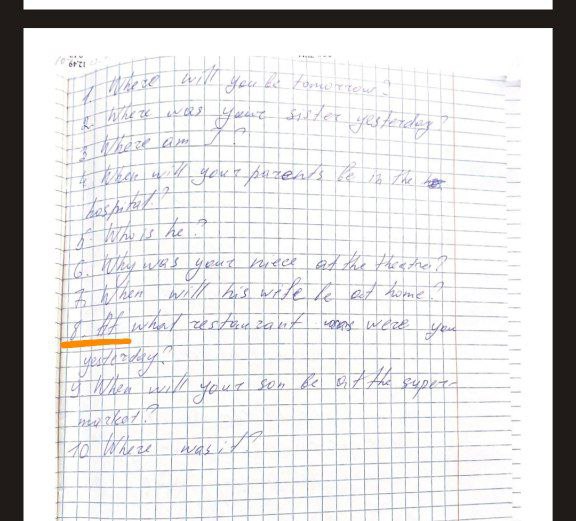 12:49
1. Where will you be tomorrow?
2. Where was your sister yesterday?
3 Where am I?
4. When will your parents be in the
hospital?
5. Who is he?
6. Why was your niece at the theatre?
7. When will his wife be at home?
8. At what restaurant was were you
yesterday?
9 When will your son be at the super-
market?
10 Where was it?